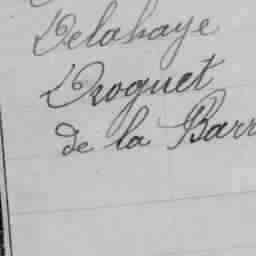 Delahaye
Droguet
de la Barr